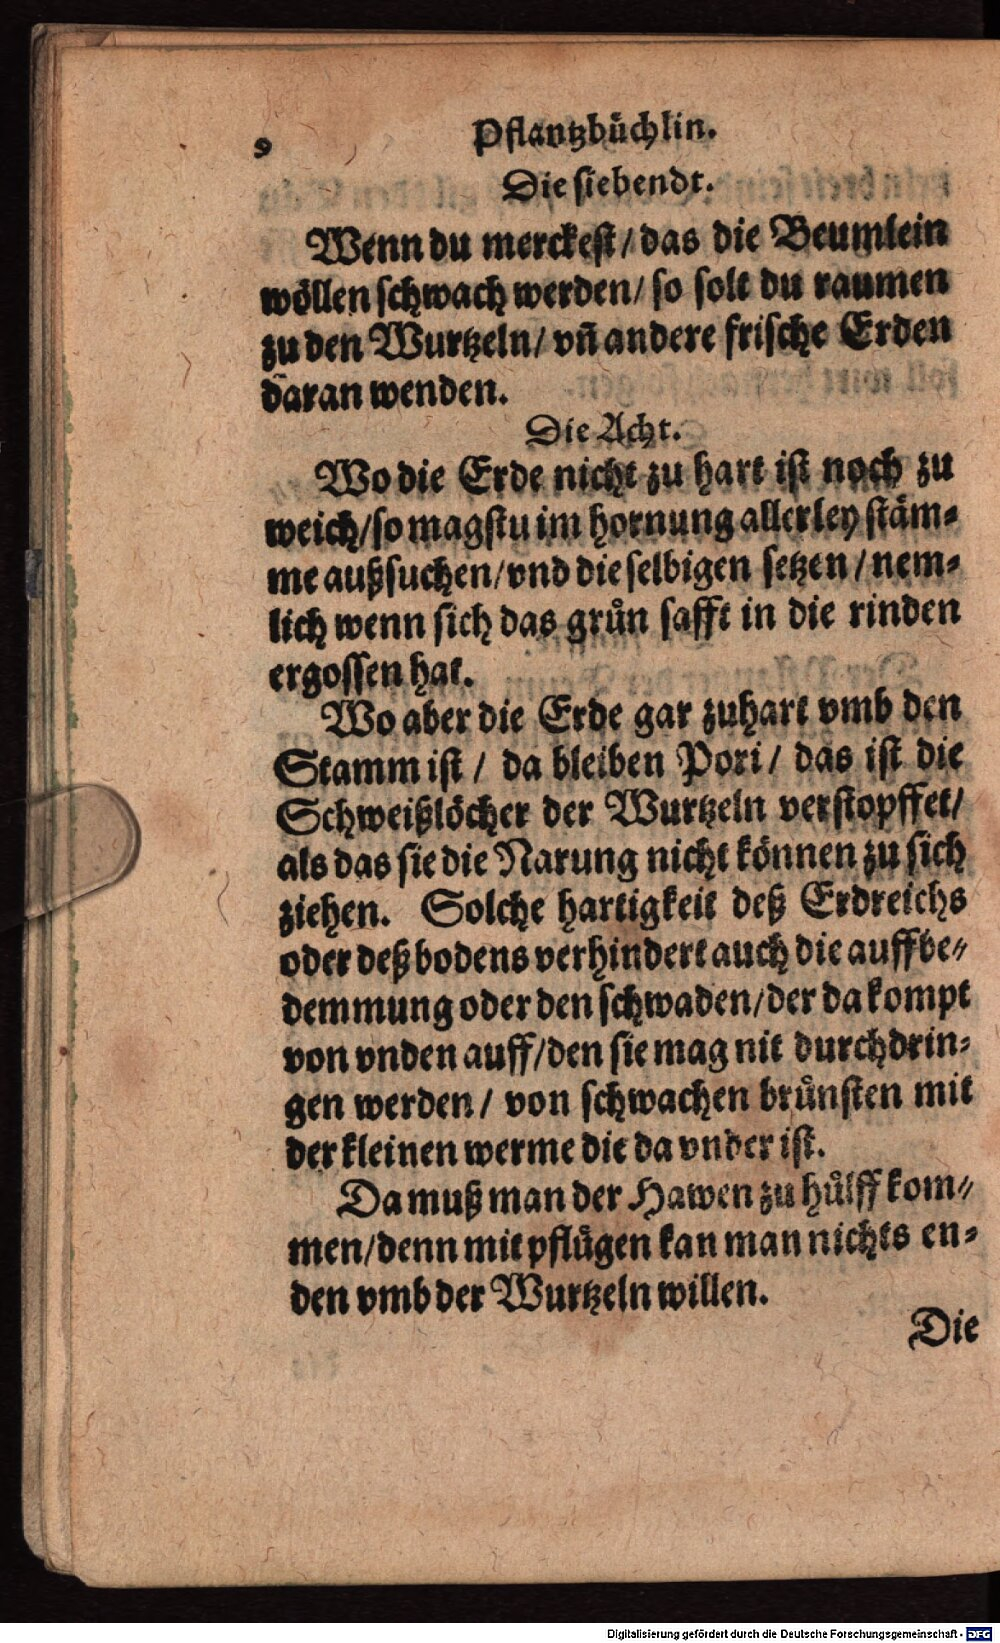 9 Pflantzbüchlin.
Die siebendt.
Wenn du merckest / das die Beumlein
wöllen schwach werden / so solt du raumen
zu den Wurtzeln / vn̄ andere frische Erden
daran wenden.
Die Acht.
Wo die Erde nicht zu hart ist noch zu
weich / so magstu im Hornung allerley stäm-
me außsuchen / vnd dieselbigen setzen / nem-
lich wenn sich das grůn safft in die rinden
ergossen hat.
Wo aber die Erde gar zuhart vmb den
Stamm ist / da bleiben Pori / das ist die
Schweißlöcher der Wurtzeln verstopffet /
als das sie die Narung nicht können zu sich
ziehen. Solche hartigkeit deß Erdreichs
oder deß bodens verhindert auch die auffbe-
demmung oder den schwaden / der da kompt
von vnden auff / den sie mag nit durchdrin-
gen werden / von schwachen brůnsten mit
der kleinen werme die da vnder ist.
Da muß man der Hawen zu hůlff kom-
men / denn mit pflůgen kan man nichts en-
den vmb der Wurtzeln willen.
Die
Digitalisierung gefördert durch die Deutsche Forschungsgemeinschaft - DFG